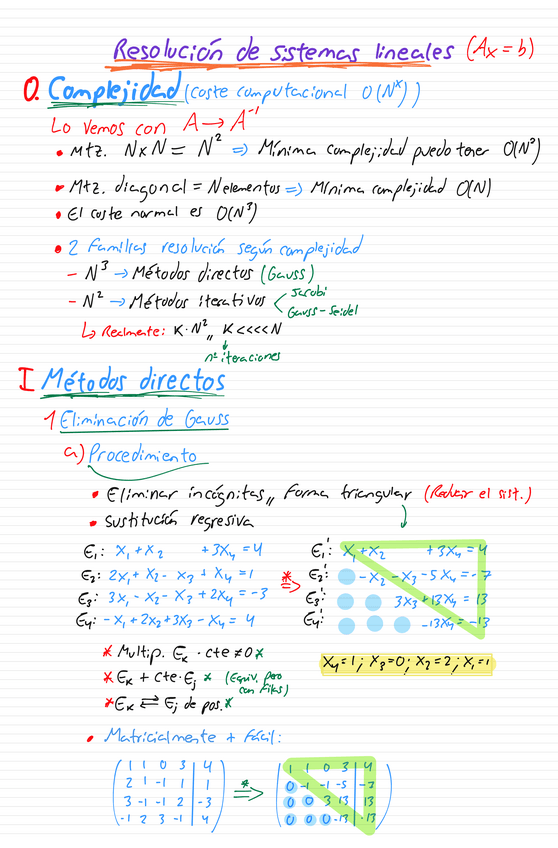 Resolución de sistemas lineales (Ax = b)
0. Complejidad (coste computacional O(N^x))
Lo vemos con A → A^-1
• Mtz. N×N = N² ⇒ Mínima complejidad puedo tener O(N²)
• Mtz. diagonal = N elementos ⇒ Mínima complejidad O(N)
• El coste normal es O(N³)
• 2 Familias resolución según complejidad
- N³ → Métodos directos (Gauss)
- N² → Métodos iterativos < Jacobi
Gauss-Seidel
↳ Realmente: K·N² ,, K <<<< N
↓
nº iteraciones
I Métodos directos
1 Eliminación de Gauss
a) Procedimiento
• Eliminar incógnitas ,, Forma triangular (Reducir el sist.)
• Sustitución regresiva
E1: x1 + x2 + 3x4 = 4
E2: 2x1 + x2 - x3 + x4 = 1
E3: 3x1 - x2 - x3 + 2x4 = -3
E4: -x1 + 2x2 + 3x3 - x4 = 4
* ⇒
E1': x1 + x2 + 3x4 = 4
E2': -x2 - x3 - 5x4 = -7
E3': 3x3 + 13x4 = 13
E4': -13x4 = -13
* Multip. Ek · cte ≠ 0 *
* Ek + cte·Ej * (Equiv. pero
con filas)
* Ek ⇄ Ej de pos. *
x4 = 1 ; x3 = 0 ; x2 = 2 ; x1 = -1
• Matricialmente + fácil:
1 1 0 3 | 4
2 1 -1 1 | 1
3 -1 -1 2 | -3
-1 2 3 -1 | 4
* ⇒
1 1 0 3 | 4
0 -1 -1 -5 | -7
0 0 3 13 | 13
0 0 0 -13 | -13